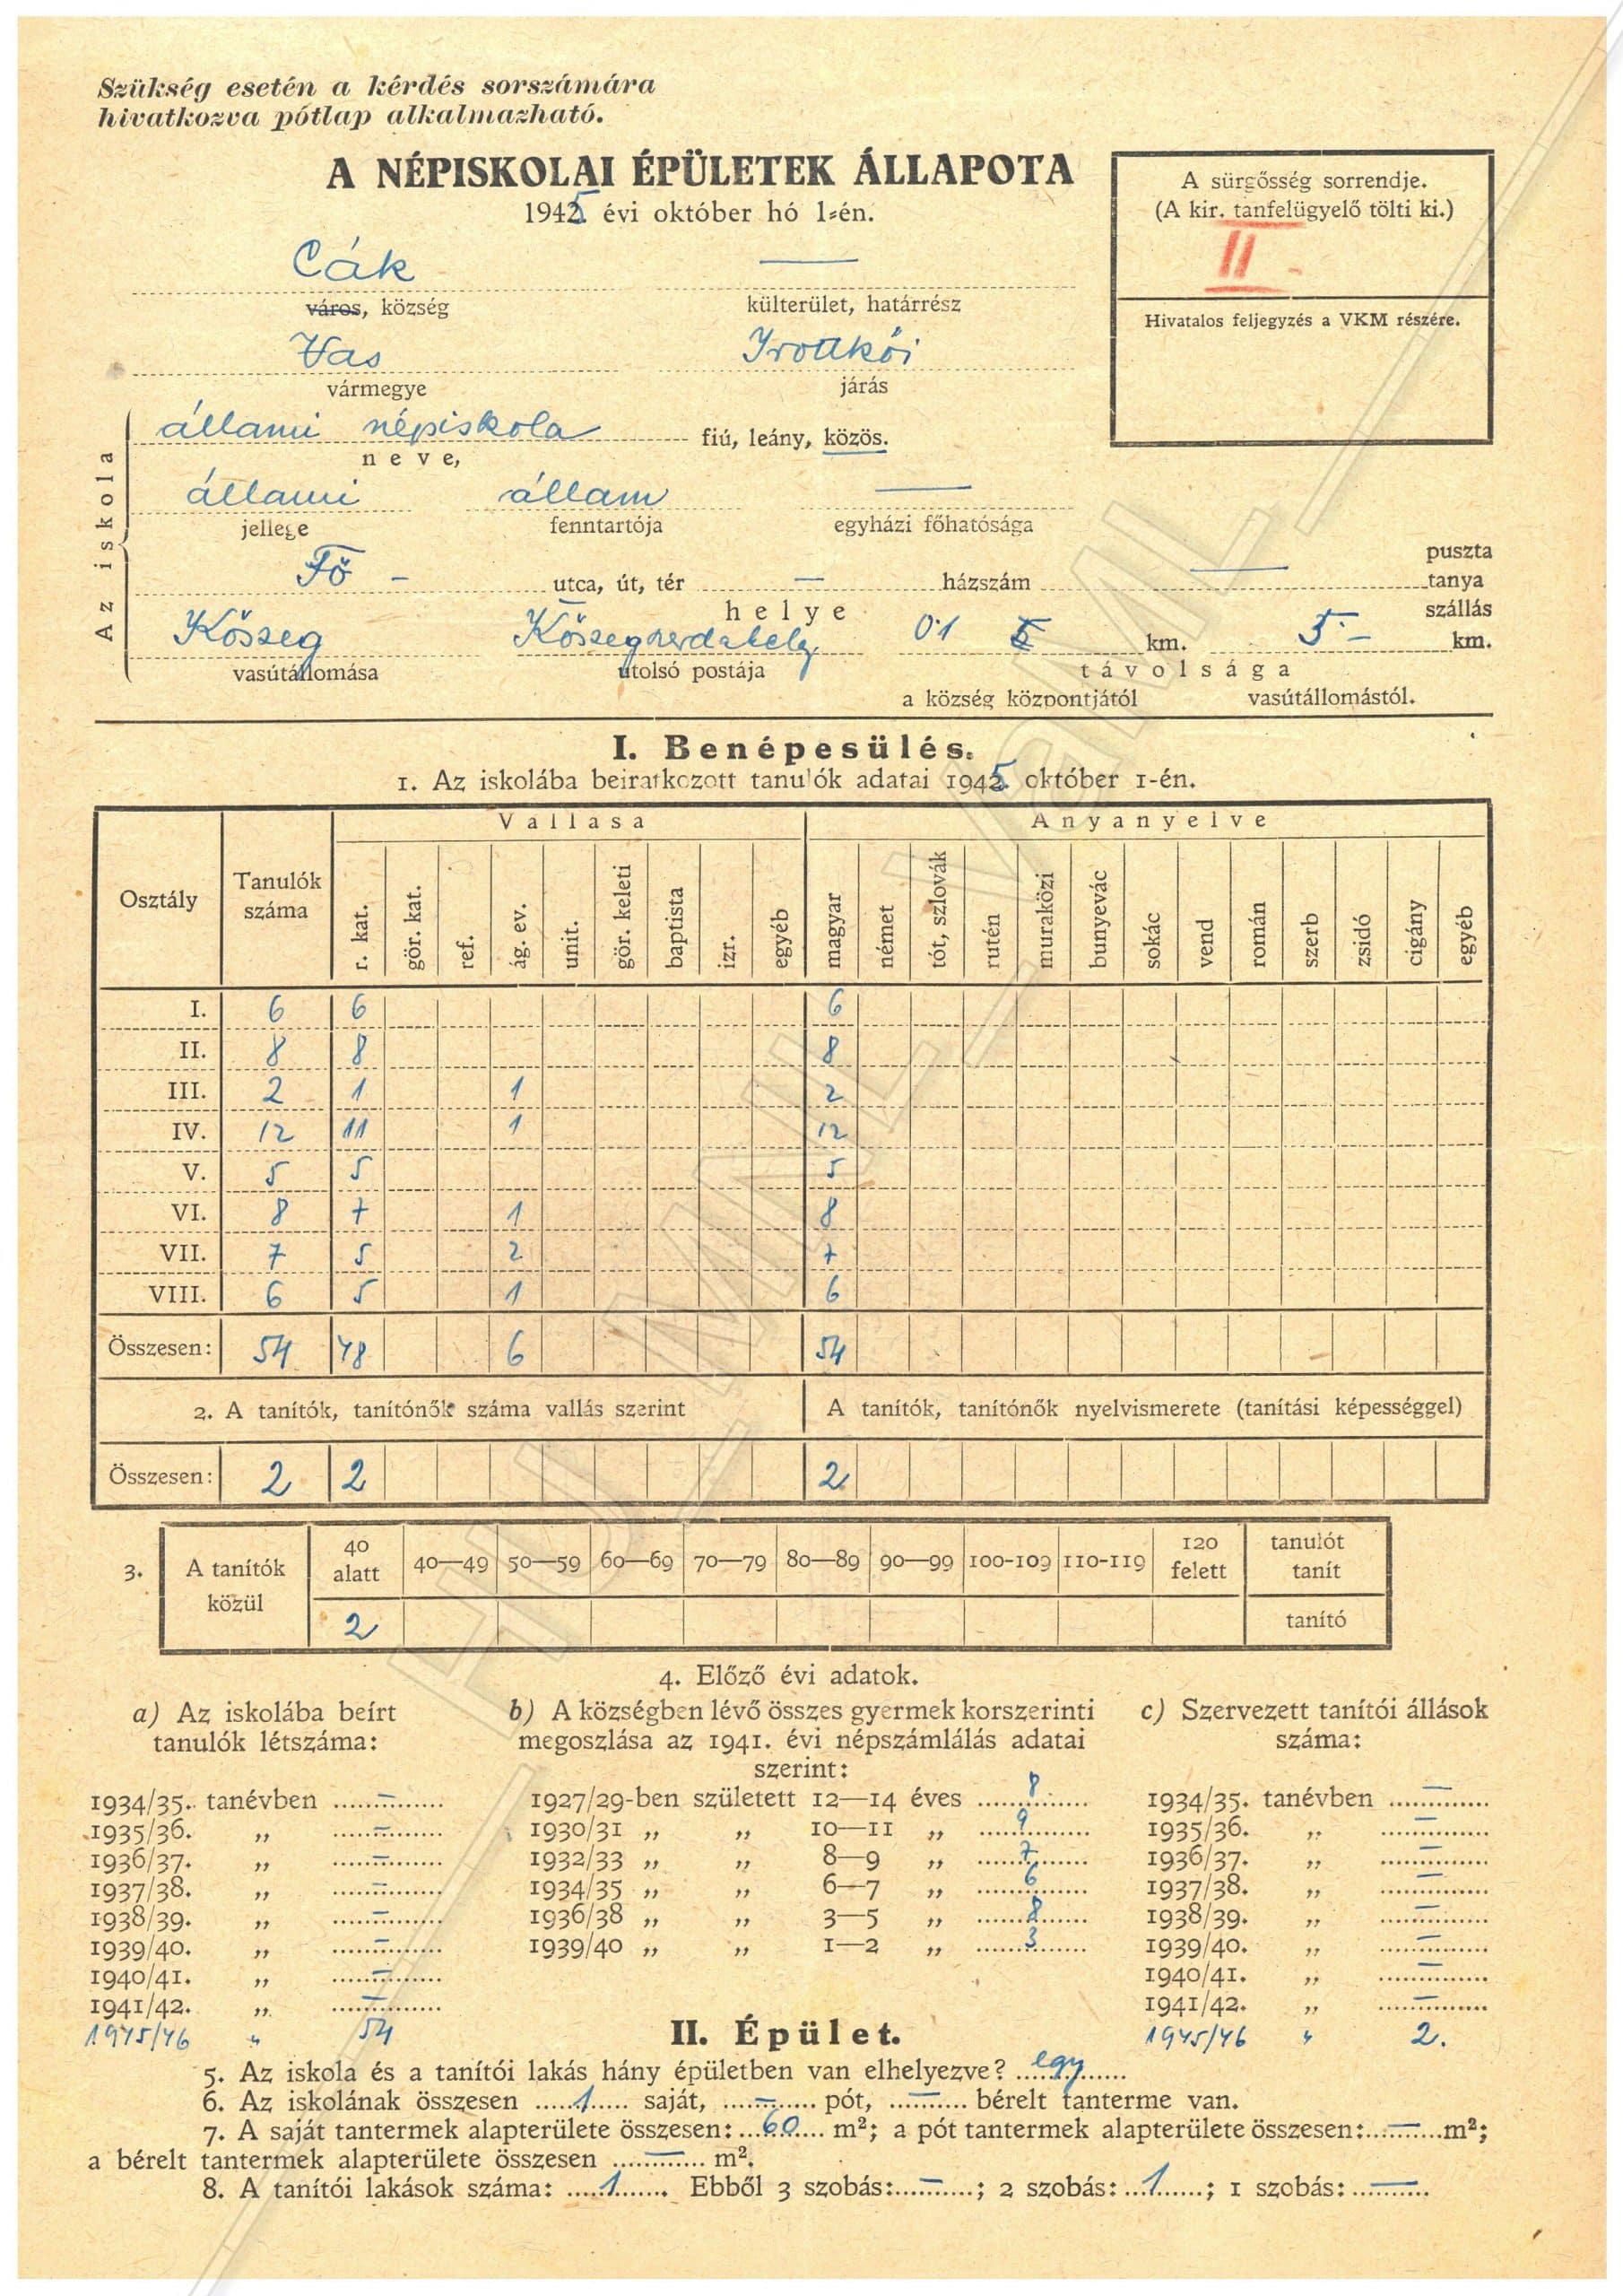 Szükség esetén a kérdés sorszámára
hivatkozva pótlap alkalmazható.
A NÉPISKOLAI ÉPÜLETEK ÁLLAPOTA
1945 évi október hó 1-én.
A sürgősség sorrendje.
(A kir. tanfelügyelő tölti ki.)
II.
Hivatalos feljegyzés a VKM részére.
Cák —
város, község külterület, határrész
Vas Irottkői
vármegye járás
Az iskola
állami népiskola fiú, leány, közös.
neve,
állami állam —
jellege fenntartója egyházi főhatósága
Fő - utca, út, tér — házszám — puszta
tanya
szállás
helye
Kőszeg 0·1 km. 5·— km.
vasútállomása utolsó postája távolsága
a község központjától vasútállomástól.
I. Benépesülés.
1. Az iskolába beiratkozott tanulók adatai 1945. október 1-én.
Vallása Anyanyelve
Osztály Tanulók száma r. kat. gör. kat. ref. ág. ev. unit. gör. keleti baptista izr. egyéb magyar német tót, szlovák rutén muraközi bunyevác sokác vend román szerb zsidó cigány egyéb
I. 6 6 6
II. 8 8 8
III. 2 1 1 2
IV. 12 11 1 12
V. 5 5 5
VI. 8 7 1 8
VII. 7 5 2 7
VIII. 6 5 1 6
Összesen: 54 48 6 54
2. A tanítók, tanítónők száma vallás szerint A tanítók, tanítónők nyelvismerete (tanítási képességgel)
Összesen: 2 2 2
3. A tanítók közül 40 alatt 40—49 50—59 60—69 70—79 80—89 90—99 100-109 110-119 120 felett tanulót tanít
2 tanító
4. Előző évi adatok.
a) Az iskolába beírt
tanulók létszáma:
b) A községben lévő összes gyermek korszerinti
megoszlása az 1941. évi népszámlálás adatai
szerint:
c) Szervezett tanítói állások
száma:
1934/35. tanévben — 1927/29-ben született 12—14 éves 8 1934/35. tanévben —
1935/36. „ — 1930/31 „ „ 10—11 „ 9 1935/36. „ —
1936/37. „ — 1932/33 „ „ 8—9 „ 7 1936/37. „ —
1937/38. „ — 1934/35 „ „ 6—7 „ 6 1937/38. „ —
1938/39. „ — 1936/38 „ „ 3—5 „ 8 1938/39. „ —
1939/40. „ — 1939/40 „ „ 1—2 „ 3 1939/40. „ —
1940/41. „ — 1940/41. „ —
1941/42. „ — 1941/42. „ —
1945/46 „ 54 1945/46 „ 2.
II. Épület.
5. Az iskola és a tanítói lakás hány épületben van elhelyezve? egy
6. Az iskolának összesen 1 saját, — pót, — bérelt tanterme van.
7. A saját tantermek alapterülete összesen: 60 m²; a pót tantermek alapterülete összesen: — m²;
a bérelt tantermek alapterülete összesen — m².
8. A tanítói lakások száma: 1. Ebből 3 szobás: —; 2 szobás: 1; 1 szobás: —
HU_MNL_VaML